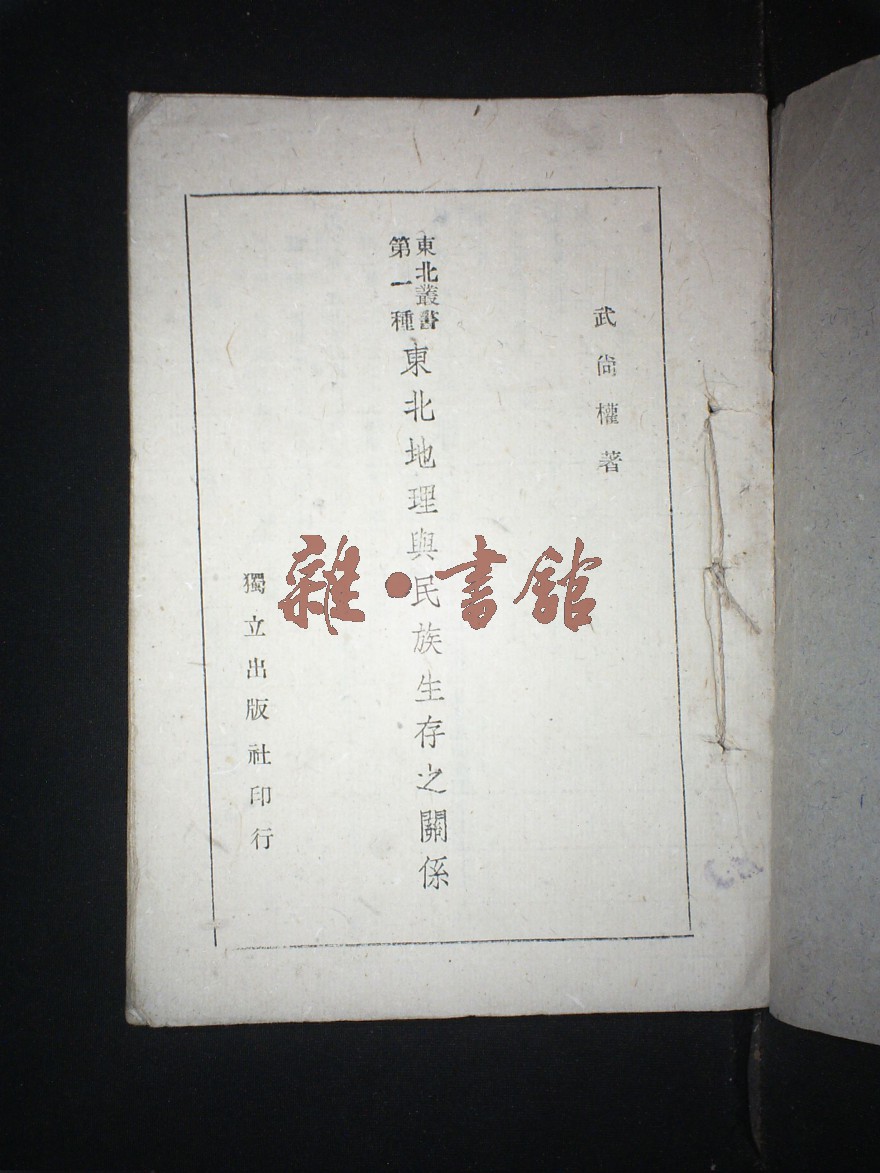 武尙權著
東北叢書
第一種
東北地理與民族生存之關係
獨立出版社印行
雜·書館